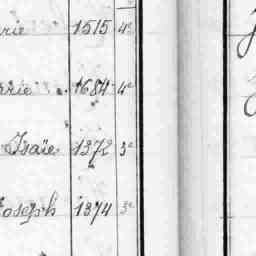 rie 1515 4e
rie 1684 4e
Isaïe 1372 3e
Joseph 1374 3e